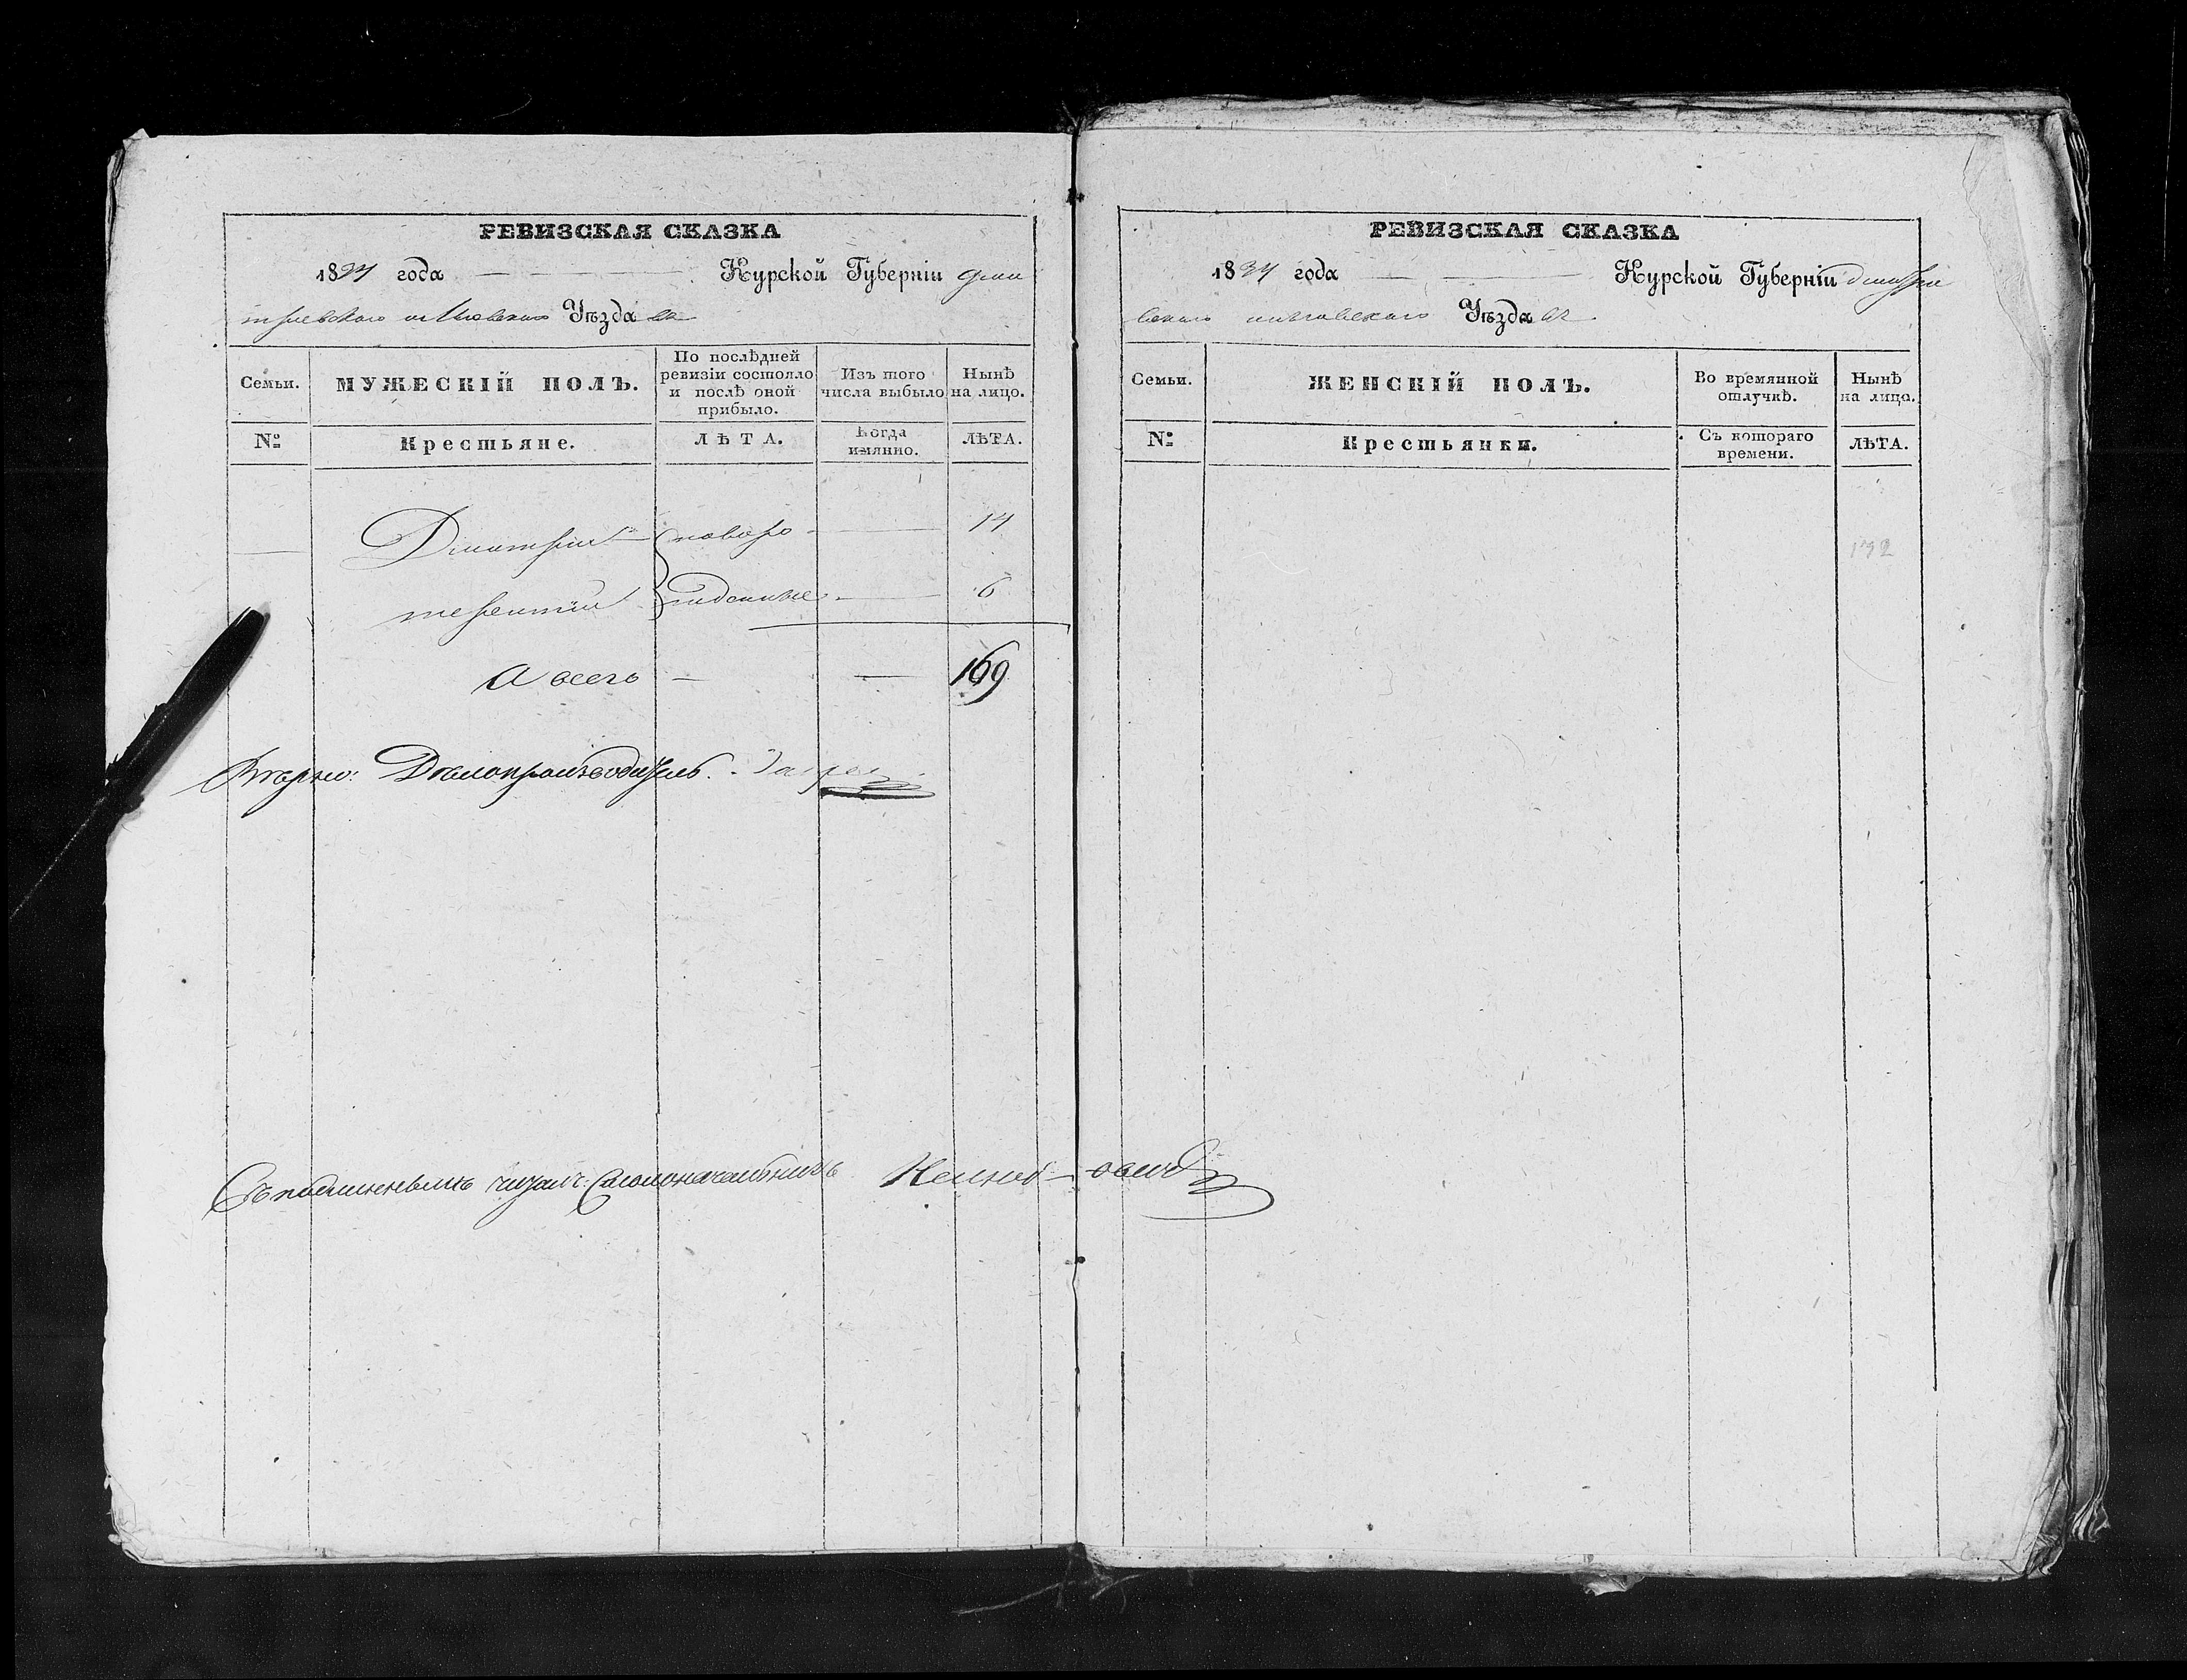 РЕВИЗСКАЯ СКАЗКА
1834 года Курской Губерніи Дми
тріевскаго Уѣзда
Семьи. МУЖЕСКІЙ ПОЛЪ. По послѣдней ревизіи состояло и послѣ оной прибыло. Изъ того числа выбыло Нынѣ на лицо.
№ Крестьяне. ЛѢТА. Когда имянно. ЛѢТА.
Дмитрій новоро 14
терентій жденные 6
А всего 169
Вѣрно: Дѣлопроизводитель
Съ подлиннымъ читалъ: Столоначальникъ
РЕВИЗСКАЯ СКАЗКА
1834 года Курской Губерніи Дмитріе
вскаго Уѣзда
Семьи. ЖЕНСКІЙ ПОЛЪ. Во времянной отлучкѣ. Нынѣ на лицо.
№ Крестьянки. Съ котораго времени. ЛѢТА.
192